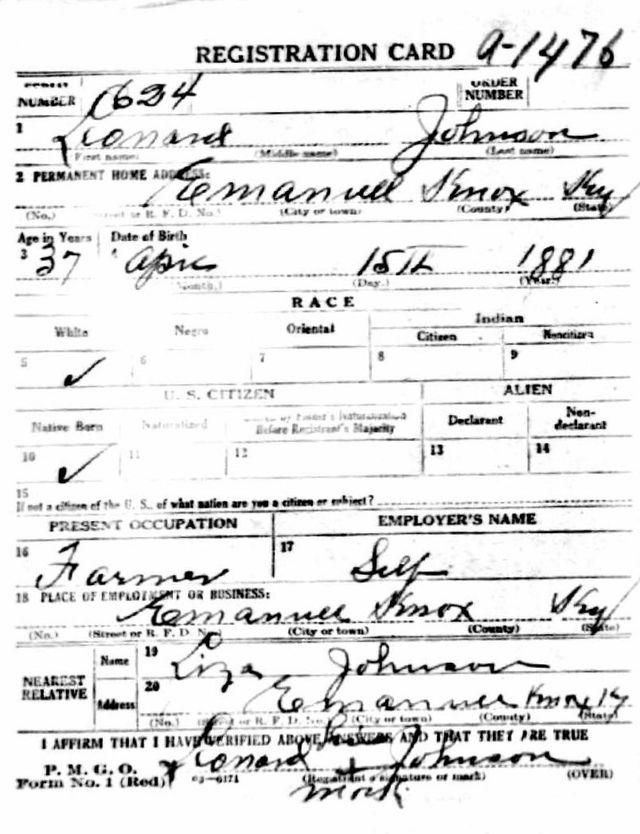 REGISTRATION CARD A-1476
SERIAL NUMBER 624 ORDER NUMBER
1 Leonard Johnson
(First name) (Middle name) (Last name)
2 PERMANENT HOME ADDRESS:
Emanuel Knox Ky
(No.) (Street or R. F. D. No.) (City or town) (County) (State)
Age in Years Date of Birth
3 37 4 April 15th 1881
(Month.) (Day.) (Year.)
RACE
White Negro Oriental Indian
Citizen Noncitizen
5 ✓ 6 7 8 9
U. S. CITIZEN ALIEN
Native Born Naturalized Citizen by Father's Naturalization Before Registrant's Majority Declarant Non-declarant
10 ✓ 11 12 13 14
15
If not a citizen of the U. S., of what nation are you a citizen or subject?
PRESENT OCCUPATION EMPLOYER'S NAME
16 Farmer 17 Self
18 PLACE OF EMPLOYMENT OR BUSINESS:
Emanuel Knox Ky
(No.) (Street or R. F. D. No.) (City or town) (County) (State)
NEAREST RELATIVE Name 19 Liza Johnson
Address 20 Emanuel Knox Ky
(No.) (Street or R. F. D. No.) (City or town) (County) (State)
I AFFIRM THAT I HAVE VERIFIED ABOVE ANSWERS AND THAT THEY ARE TRUE
P. M. G. O.
Form No. 1 (Red) 03-6171 Leonard Johnson
(Registrant's signature or mark) (OVER)
mark